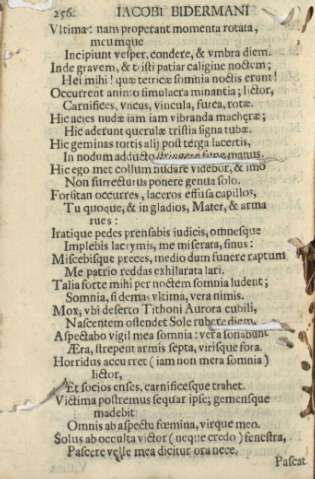 256. IACOBI BIDERMANI
Vltima: nam properant momenta rotata,
meumque
Incipiunt vesper, condere, & vmbra diem.
Inde gravem, & tristi patiar caligine noctem;
Hei mihi! quæ tetricæ somnia noctis erunt!
Occurrent animo simulacra minantia; lictor,
Carnifices, vncus, vincula, furca, rotæ.
Hic acies nudæ iam iam vibranda machæræ;
Hic aderunt querulæ tristia signa tubæ.
Hic geminas tortis alij post terga lacertis,
In nodum adducto stringere fune manus.
Hic ego met collum nudare videbor, & imo
Non surrecturus ponere genua solo.
Forsitan occurres, laceros effusa capillos,
Tu quoque, & in gladios, Mater, & arma
rues:
Iratique pedes prensabis iudicis, omnesque
Implebis lacrymis, me miserata, sinus:
Miscebisque preces, medio dum funere raptum
Me patrio reddas exhilarata lari.
Talia forte mihi per noctem somnia ludent;
Somnia, si demas vltima, vera nimis.
Mox, vbi deserto Tithoni Aurora cubili,
Nascentem ostendet Sole rubere diem,
Aspectabo vigil mea somnia: vera sonabunt
Æra, strepent armis septa, virisque fora.
Horridus accurret (iam non mera somnia)
lictor,
Et socios enses, carnificesque trahet.
Victima postremus sequar ipse; gemensque
madebit
Omnis ab aspectu fœmina, virque meo.
Solus ab occulta victor (neque credo) fenestra,
Pascere velle mea dicitur ora nece.
Pascat